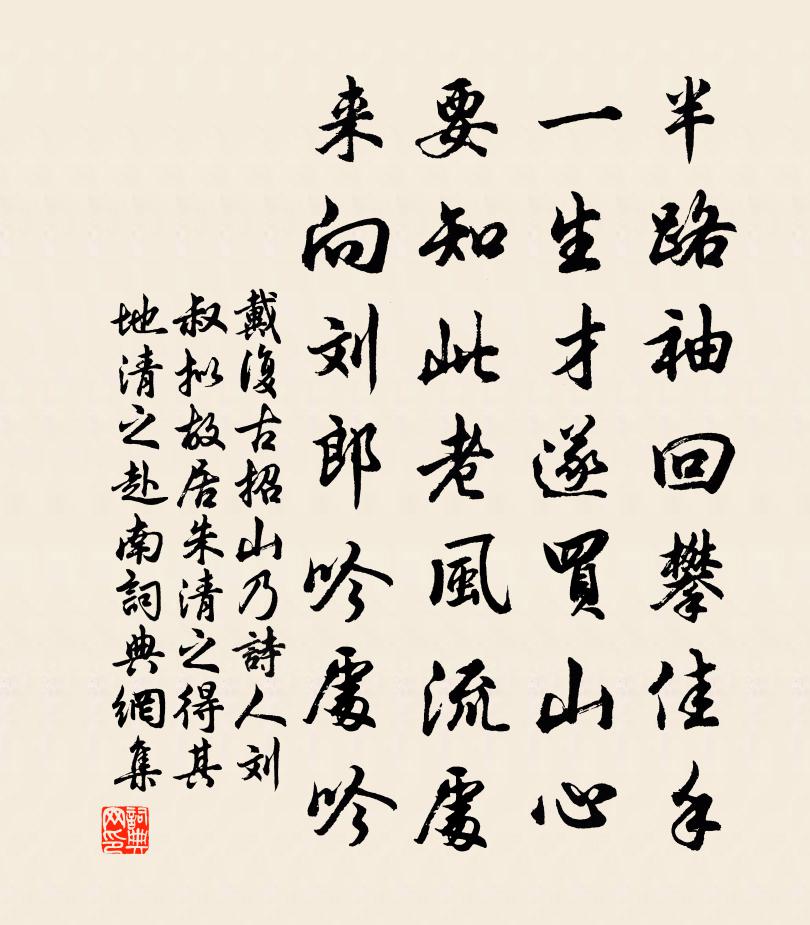 半路袖回攀佳手
一生才遂買山心
要知此老風流處
来向刘郎吟處吟
戴復古招山乃詩人刘
叔拟故居朱清之得其
地清之赴南詞典網集
詞典
网印